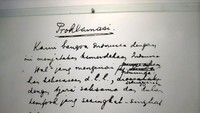 Proklamasi.
Kami bangsa Indonesia dengan
ini menjatakan kemerdekaan Indonesia
Hal2 jang mengenai
kekoeasaan d.l.l.,
dengan tjara saksama dan dalam
tempoh jang sesingkat-singkat